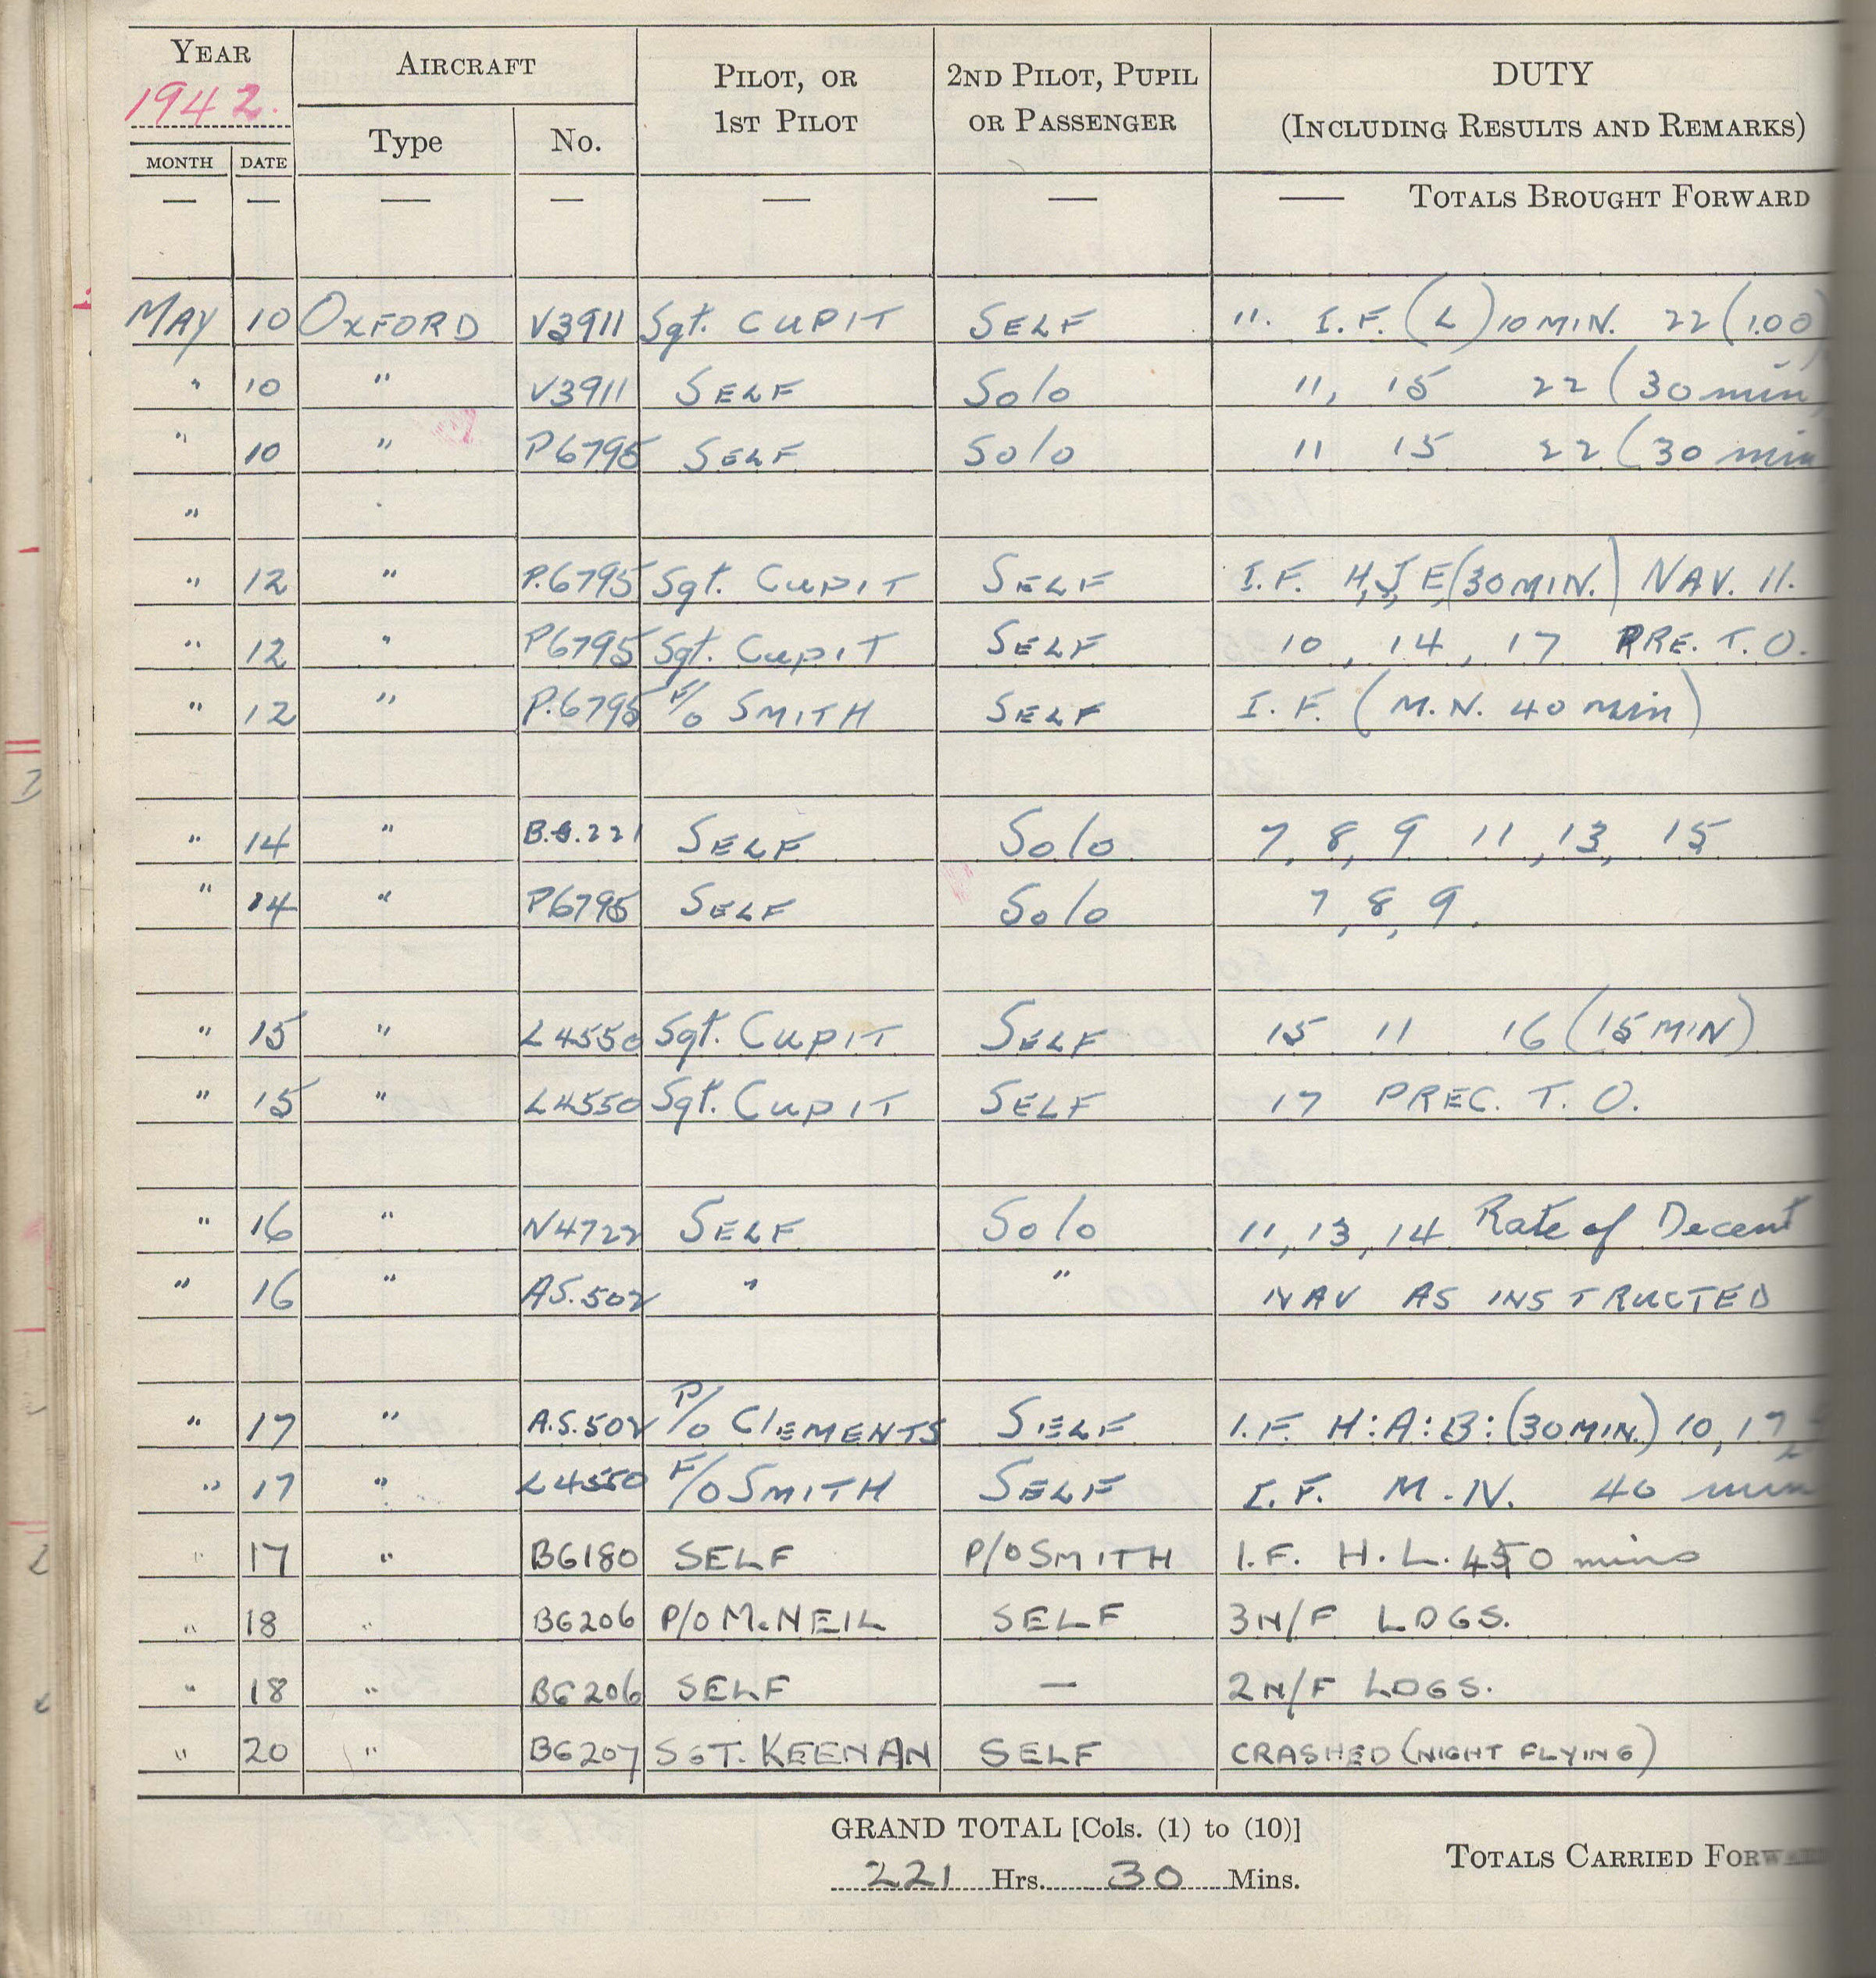 YEAR AIRCRAFT PILOT, OR 2ND PILOT, PUPIL DUTY
1942. 1ST PILOT OR PASSENGER (INCLUDING RESULTS AND REMARKS)
Type No.
MONTH DATE
— — — — — — — TOTALS BROUGHT FORWARD
MAY 10 OXFORD V3911 Sgt. CUPIT SELF 11. I.F. (L) 10 MIN. 22 (1.00)
" 10 " V3911 SELF Solo 11, 15 22 (30 min)
" 10 " P6795 SELF Solo 11 15 22 (30 min
"
" 12 " P.6795 Sgt. CUPIT SELF I.F. H, J, E, (30 MIN.) NAV. 11.
" 12 " P6795 Sgt. CUPIT SELF 10, 14, 17 PRE. T.O.
" 12 " P.6795 F/O SMITH SELF I.F. (M.N. 40 min)
" 14 " B.G.221 SELF Solo 7, 8, 9 11, 13, 15
" 14 " P6795 SELF Solo 7, 8, 9.
" 15 " L4550 Sgt. CUPIT SELF 15 11 16 (15 MIN)
" 15 " L4550 Sgt. CUPIT SELF 17 PREC. T.O.
" 16 " N4722 SELF Solo 11, 13, 14 Rate of Decent
" 16 " AS.502 " " NAV AS INSTRUCTED
" 17 " A.S.502 P/O ClEMENTS SELF I.F. H:A:B: (30 MIN.) 10, 17
" 17 " L4550 F/O SMITH SELF I.F. M.N. 40 min
" 17 " BG180 SELF P/O SMITH I.F. H.L. 450 mins
" 18 " BG206 P/O McNEIL SELF 3 N/F LDGS.
" 18 " BG206 SELF — 2 N/F LDGS.
" 20 " BG207 SGT. KEENAN SELF CRASHED (NIGHT FLYING)
GRAND TOTAL [Cols. (1) to (10)]
221 Hrs. 30 Mins.
TOTALS CARRIED FORWARD